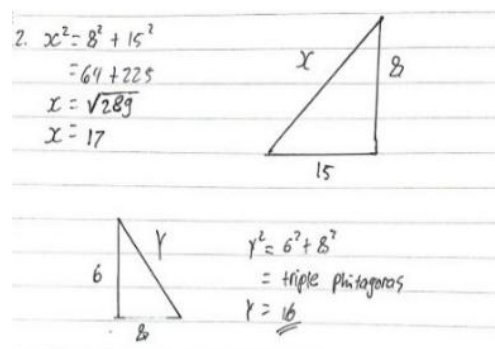 2. x² = 8² + 15²
= 64 + 225
x = √289
x = 17
x
8
15
6
Y
8
Y² = 6² + 8²
= triple phitagoras
Y = 16